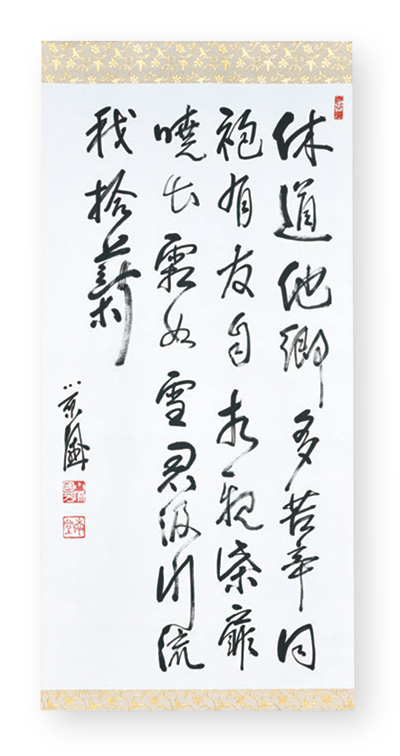 休道他郷多苦辛同
袍有友自相親柴扉
暁出霜如雪君汲川流
我拾薪